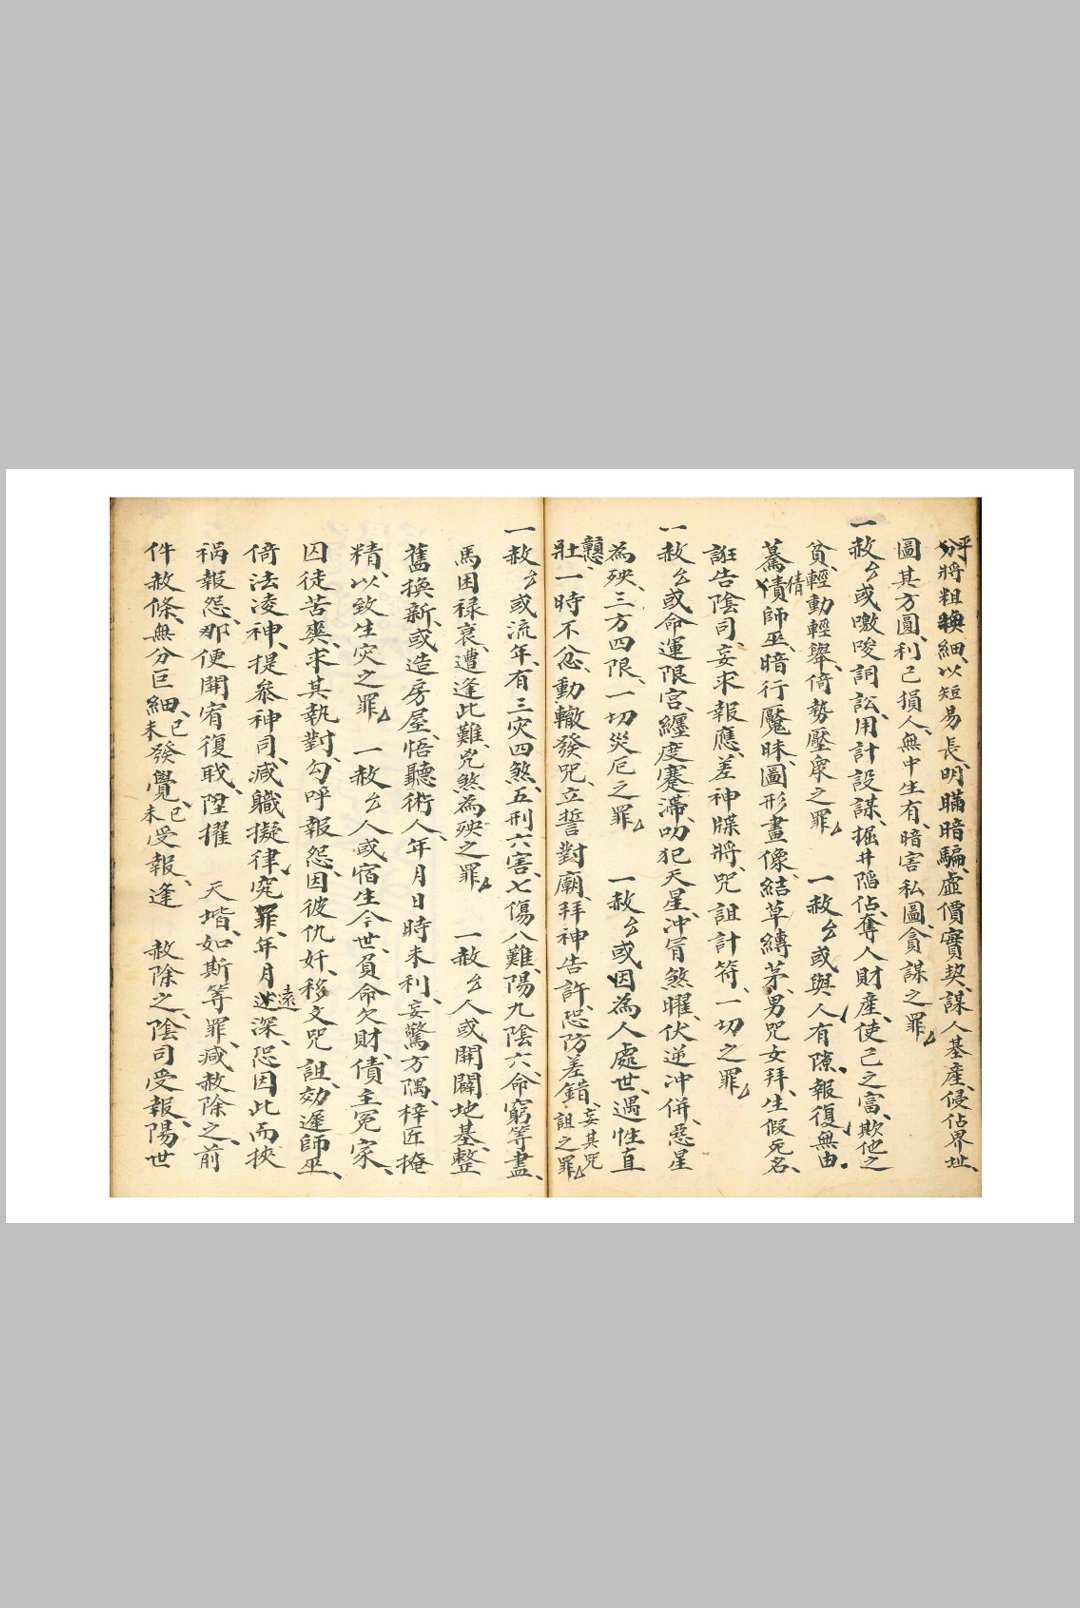 平
分將粗換細、以短易長、明瞞暗騙、虛價實契、謀人基產、侵佔界址、
圖其方圓、利己損人、無中生有、暗害私圖、貪謀之罪、
一赦厶或嗷唆詞訟、用計設謀、掘井陷佔、奪人財產、使己之富、欺他之
貧、輕動輕舉、倚勢壓眾之罪、 一赦厶或與人有隙、報復無由、
倩
師巫、暗行魘昧、圖形畫像、結草縛茅、男咒女拜、生假死名、
誑告陰司、妄求報應、差神牒將、咒詛計符、一切之罪、
一赦厶或命運限宮、纏度蹇滯、叨犯天星、冲冐煞曜、伏逆冲併、惡星
為殃、三方四限、一切災厄之罪、 一赦厶或因為人處世、遇性直
戇
壯一時不忿、動轍發咒、立誓對廟、拜神告許、恐防差錯、妄其咒詛之罪、
一赦厶或流年、有三灾四煞、五刑六害、七傷八難、陽九陰六、命窮等盡、
馬困祿衰、遭逢此難、兇煞為殃之罪、 一赦厶人或開闢地基、整
舊換新、或造房屋、悟聽術人、年月日時未利、妄驚方隅、梓匠掩
精、以致生灾之罪、 一赦厶人或宿生今世、負命欠財、債主冤家、
囚徒苦爽、求其執對、勾呼報怨、因彼仇奸、移文咒詛、効遣師巫、
倚法凌神、提叅神司、減職擬律、究罪、年月
遠
深、恐因此而挾
禍報怨、那便開宥復戢、陞擢 天堦、如斯等罪、咸赦除之、前
件赦條、無分巨細、已未發覺、已未受報、逢 赦除之、陰司受報、陽世